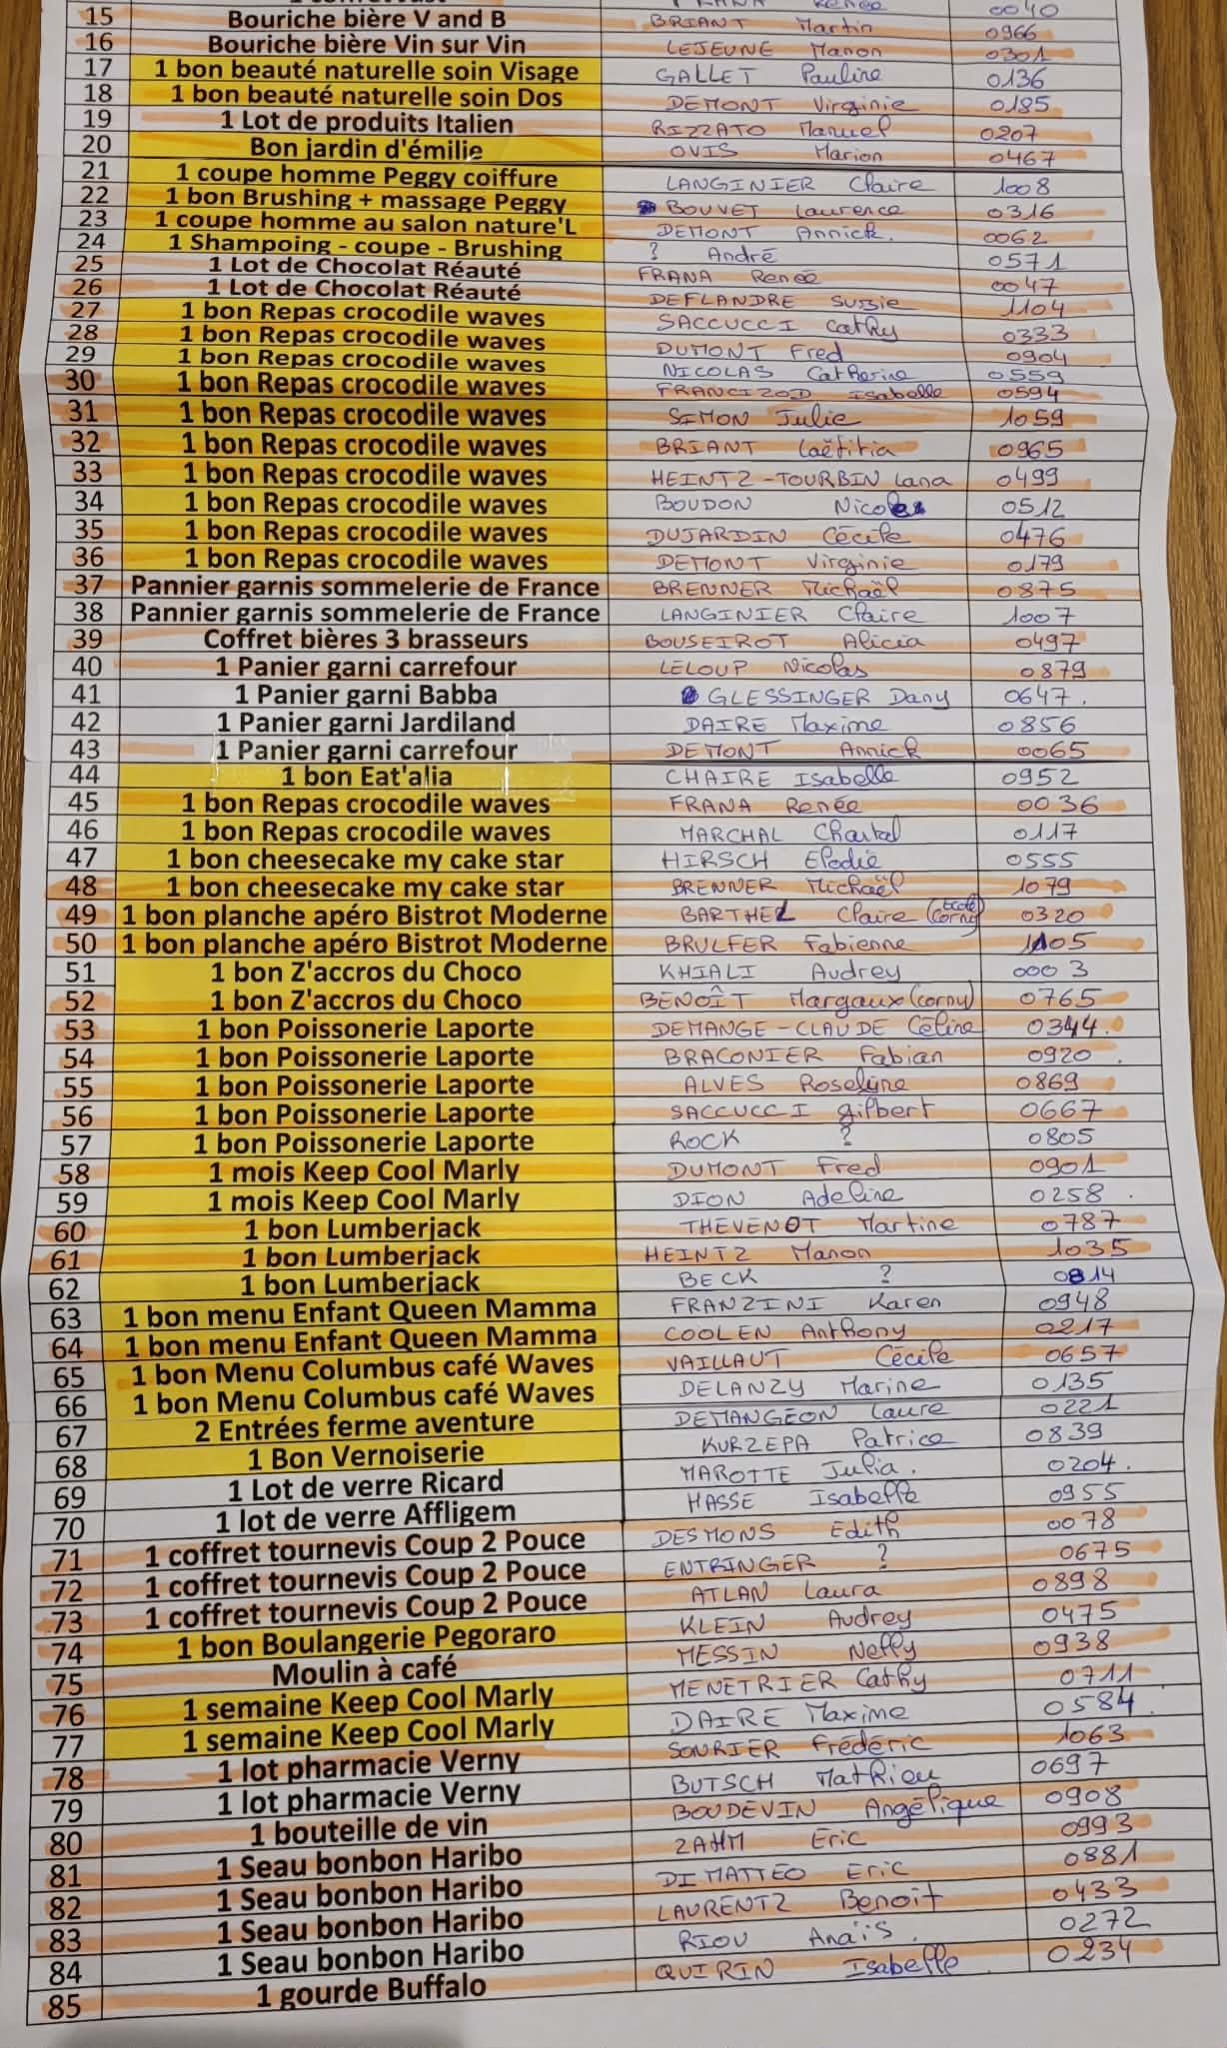 FRANA Renée 0040
15 Bouriche bière V and B BRIANT Martin 0966
16 Bouriche bière Vin sur Vin LEJEUNE Manon 0301
17 1 bon beauté naturelle soin Visage GALLET Pauline 0136
18 1 bon beauté naturelle soin Dos DEMONT Virginie 0185
19 1 Lot de produits Italien RIZZATO Manuel 0207
20 Bon jardin d'émilie OVIS Marion 0467
21 1 coupe homme Peggy coiffure LANGINIER Claire 1008
22 1 bon Brushing + massage Peggy BOUVET Laurence 0316
23 1 coupe homme au salon nature'L DEMONT Annick. 0062
24 1 Shampoing - coupe - Brushing ? André 0571
25 1 Lot de Chocolat Réauté FRANA Renée 0047
26 1 Lot de Chocolat Réauté DEFLANDRE Suzzie 1104
27 1 bon Repas crocodile waves SACCUCCI Cathy 0333
28 1 bon Repas crocodile waves DUMONT Fred 0904
29 1 bon Repas crocodile waves NICOLAS Catherine 0559
30 1 bon Repas crocodile waves FRANCIZOD Isabelle 0594
31 1 bon Repas crocodile waves SIMON Julie 1059
32 1 bon Repas crocodile waves BRIANT Laëtitia 0965
33 1 bon Repas crocodile waves HEINTZ-TOURBIN Lana 0499
34 1 bon Repas crocodile waves BOUDON Nicolas 0512
35 1 bon Repas crocodile waves DUJARDIN Cécile 0476
36 1 bon Repas crocodile waves DEMONT Virginie 0179
37 Pannier garnis sommelerie de France BRENNER Michaël 0875
38 Pannier garnis sommelerie de France LANGINIER Claire 1007
39 Coffret bières 3 brasseurs BOUSEIROT Alicia 0497
40 1 Panier garni carrefour LELOUP Nicolas 0879
41 1 Panier garni Babba GLESSINGER Dany 0647.
42 1 Panier garni Jardiland DAIRE Maxime 0856
43 1 Panier garni carrefour DEMONT Annick 0065
44 1 bon Eat'alia CHAIRE Isabelle 0952
45 1 bon Repas crocodile waves FRANA Renée 0036
46 1 bon Repas crocodile waves MARCHAL Chantal 0117
47 1 bon cheesecake my cake star HIRSCH Elodie 0555
48 1 bon cheesecake my cake star BRENNER Michaël 1079
49 1 bon planche apéro Bistrot Moderne BARTHEL Claire (Ecole Corny) 0320
50 1 bon planche apéro Bistrot Moderne BRULFER Fabienne 1105
51 1 bon Z'accros du Choco KHIALI Audrey 0003
52 1 bon Z'accros du Choco BENOÎT Margaux (corny) 0765
53 1 bon Poissonerie Laporte DEMANGE-CLAUDE Céline 0344.
54 1 bon Poissonerie Laporte BRACONIER Fabian 0920.
55 1 bon Poissonerie Laporte ALVES Roselyne 0869
56 1 bon Poissonerie Laporte SACCUCCI gilbert 0667
57 1 bon Poissonerie Laporte ROCK ? 0805
58 1 mois Keep Cool Marly DUMONT Fred 0901
59 1 mois Keep Cool Marly DION Adeline 0258.
60 1 bon Lumberjack THEVENOT Martine 0787
61 1 bon Lumberjack HEINTZ Manon 1035
62 1 bon Lumberjack BECK ? 0814
63 1 bon menu Enfant Queen Mamma FRANZINI Karen 0948
64 1 bon menu Enfant Queen Mamma COOLEN Anthony 0217
65 1 bon Menu Columbus café Waves VAILLAUT Cécile 0657
66 1 bon Menu Columbus café Waves DELANZY Marine 0135
67 2 Entrées ferme aventure DEMANGEON Laure 0221
68 1 Bon Vernoiserie KURZEPA Patrice 0839
69 1 Lot de verre Ricard MAROTTE Julia. 0204.
70 1 lot de verre Affligem HASSE Isabelle 0955
71 1 coffret tournevis Coup 2 Pouce DESMONS Edith 0078
72 1 coffret tournevis Coup 2 Pouce ENTRINGER ? 0675
73 1 coffret tournevis Coup 2 Pouce ATLAN Laura 0898
74 1 bon Boulangerie Pegoraro KLEIN Audrey 0475
75 Moulin à café MESSIN Nelly 0938
76 1 semaine Keep Cool Marly MENETRIER Cathy 0711
77 1 semaine Keep Cool Marly DAIRE Maxime 0584.
78 1 lot pharmacie Verny SONRIER Frédéric 1063
79 1 lot pharmacie Verny BUTSCH Mathieu 0697
80 1 bouteille de vin BOUDEVIN Angélique 0908
81 1 Seau bonbon Haribo ZAHM Eric 0993
82 1 Seau bonbon Haribo DI MATTEO Eric 0881
83 1 Seau bonbon Haribo LAURENTZ Benoit 0433
84 1 Seau bonbon Haribo RIOU Anaïs. 0272
85 1 gourde Buffalo QUIRIN Isabelle. 0234